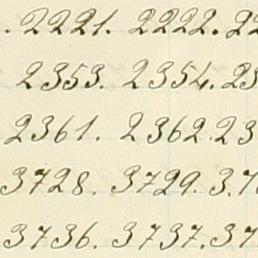 . 2221. 2222. 22
2353. 2354. 23
2361. 2362. 23
3728. 3729. 3.7
3736. 3737. 37